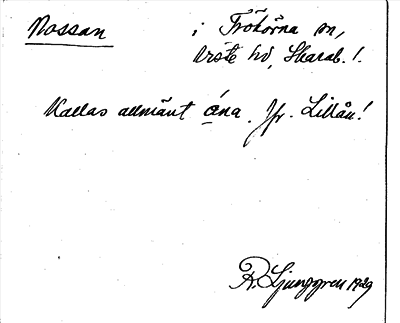 Nossan i Trökörna sn,
Åse hd, Skarab. l.
Kallas allmänt åna. Jfr. Lillån!
R. Ljunggren 1929